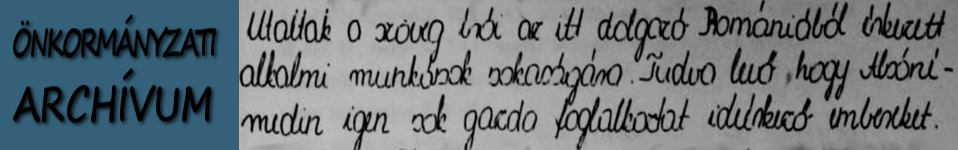 ÖNKORMÁNYZATI
ARCHÍVUM
Utaltak a szöveg írói az itt dolgozó Romániából érkezett
alkalmi munkások sokaságára. Tudva levő, hogy Alsóni-
medin igen sok gazda foglalkoztat idénkező embereket.